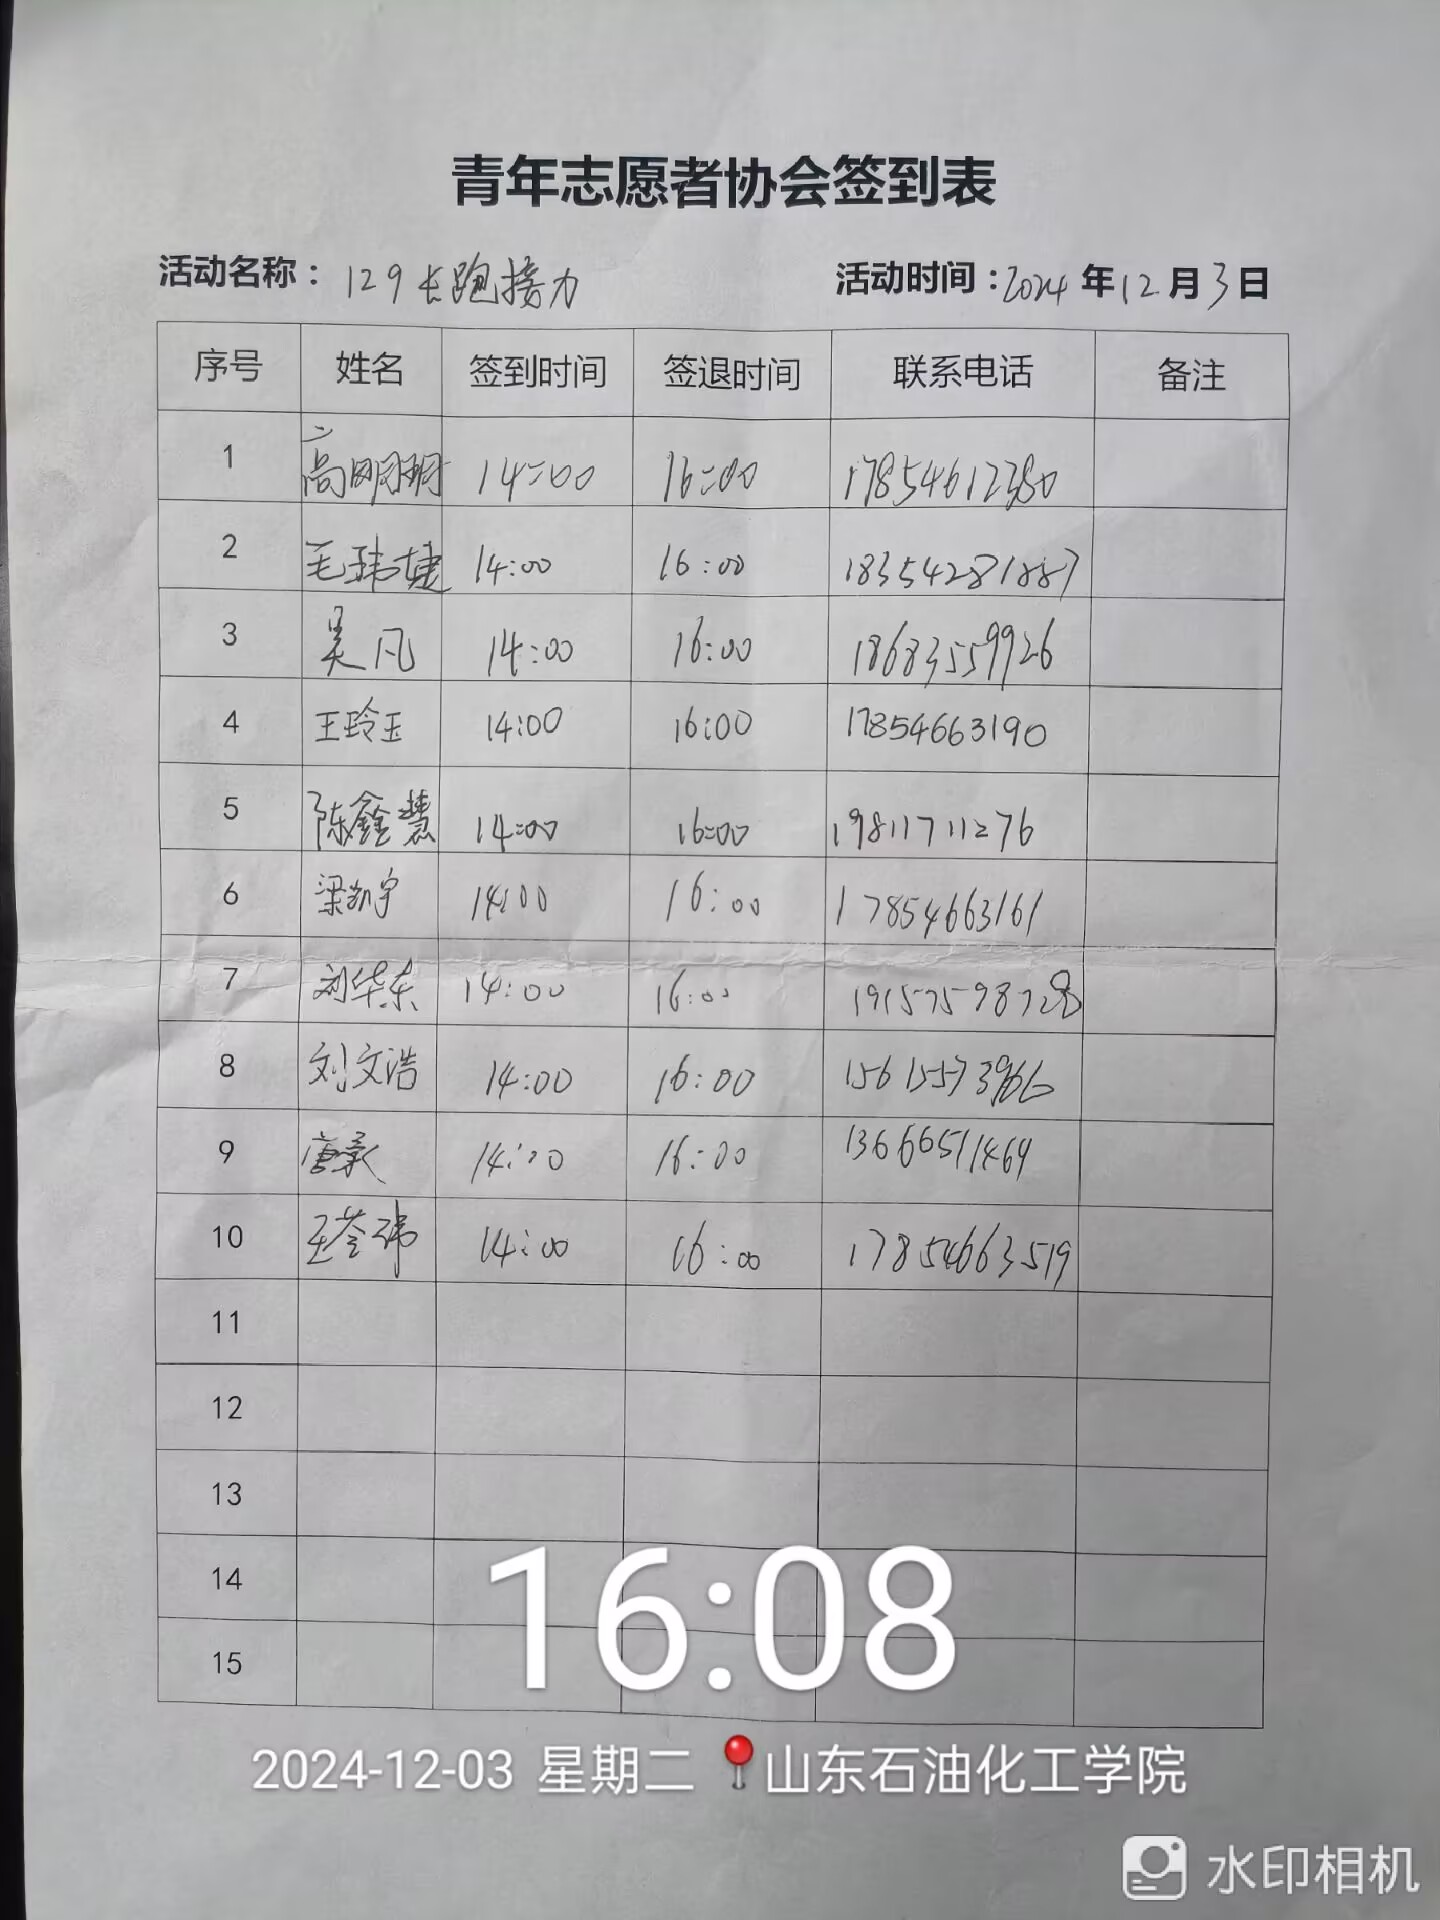 青年志愿者协会签到表
活动名称：129长跑接力 活动时间：2024年12月3日
序号 姓名 签到时间 签退时间 联系电话 备注
1 高明玥 14:00 16:00
2 毛玮婕 14:00 16:00
3 吴凡 14:00 16:00 18683559926
4 王玲玉 14:00 16:00 17854663190
5 陈鑫慧 14:00 16:00 19811711276
6 梁凯宇 14:00 16:00 17854663161
7 刘华东 14:00 16:00 19157598728
8 刘文浩 14:00 16:00 15615573966
9 唐 14:00 16:00 13666511469
10 王苓玮 14:00 16:00 17854663519
11
12
13
14
15
16:08
2024-12-03 星期二 山东石油化工学院
水印相机